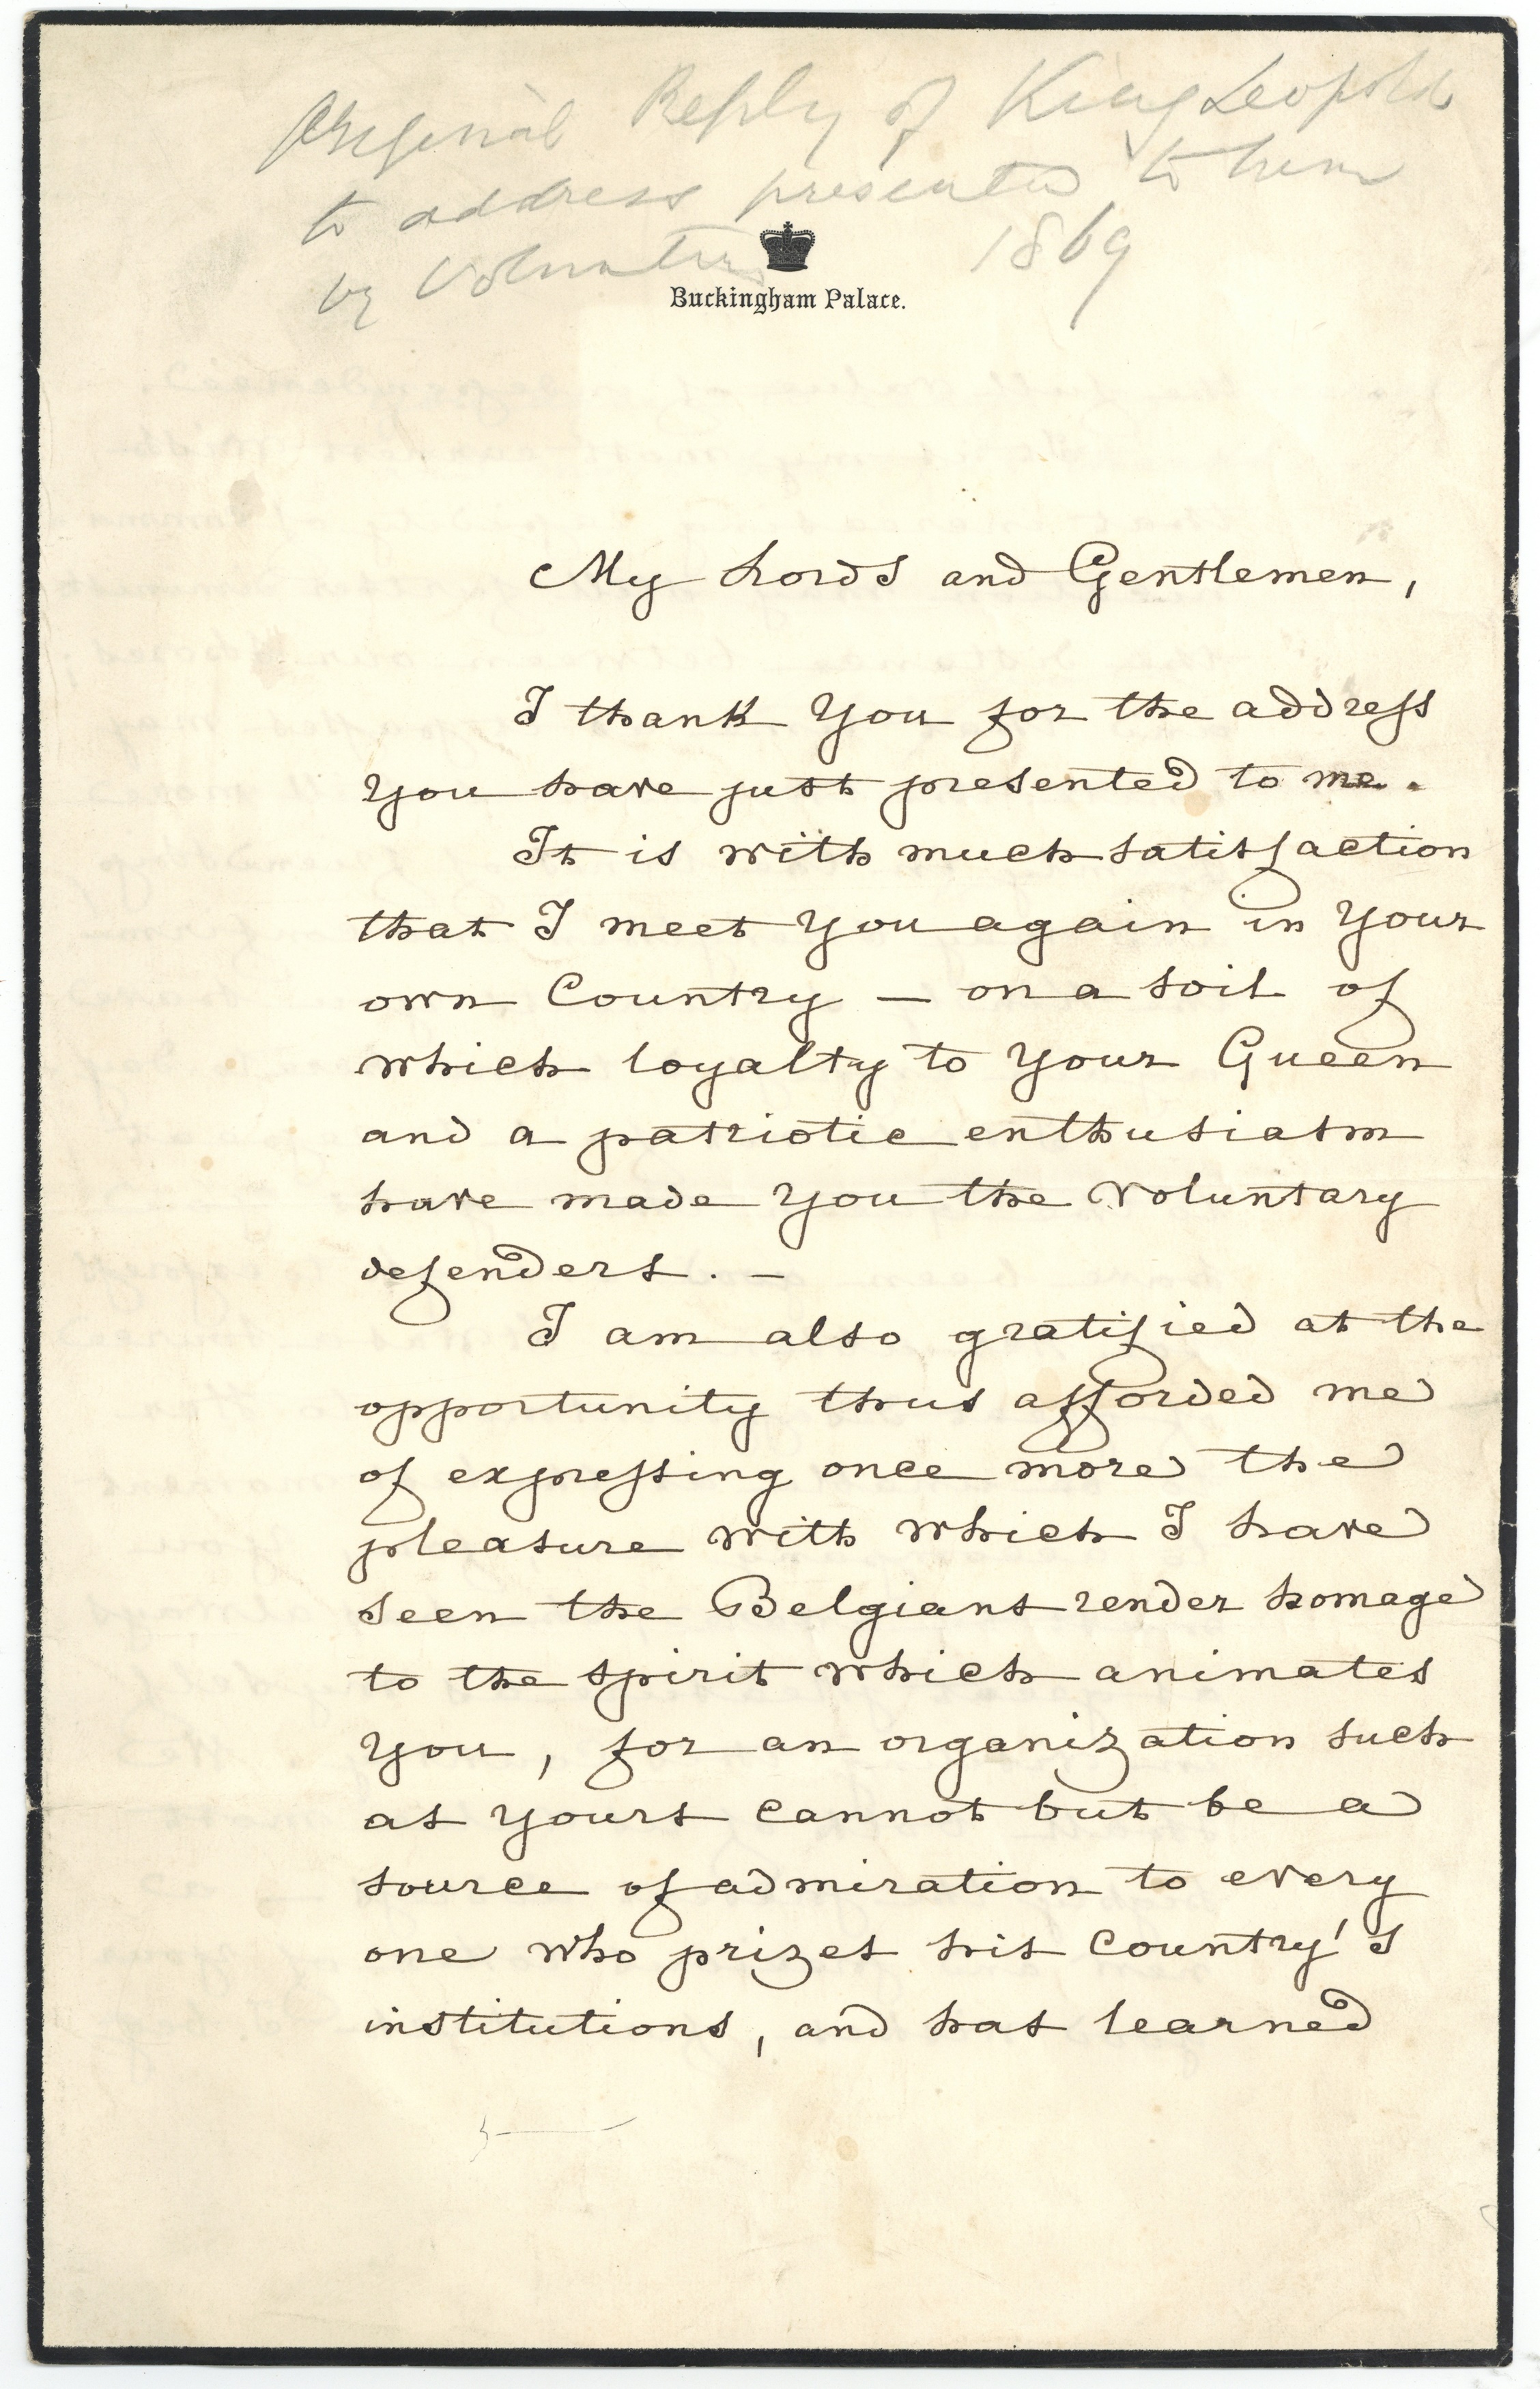 Original Reply of King Leopold
to address presented to him
by Volunteers 1869
Buckingham Palace.
My Lords and Gentlemen,
I thank You for the address
You have just presented to me.
It is with much satisfaction
that I meet You again in Your
own Country — on a soil of
which loyalty to Your Queen
and a patriotic enthusiasm
have made You the Voluntary
defenders. —
I am also gratified at the
opportunity thus afforded me
of expressing once more the
pleasure with which I have
seen the Belgians render homage
to the spirit which animates
You, for an organization such
as Yours cannot but be a
source of admiration to every
one who prizes his Country's
institutions, and has learned